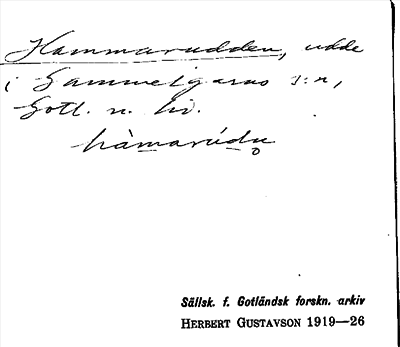 Hammarudden, udde
i Gammelgarns s:n,
Gotl. n. hd.
hàmarúdn̥
Sällsk. f. Gotländsk forskn. arkiv
HERBERT GUSTAVSON 1919—26